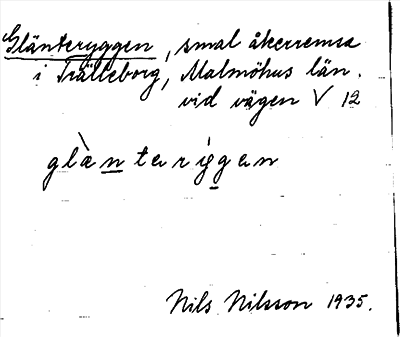 Glänteryggen, smal åkerremsa
i Trälleborg, Malmöhus län.
vid vägen V 12
glànteriggen
Nils Nilsson 1935.